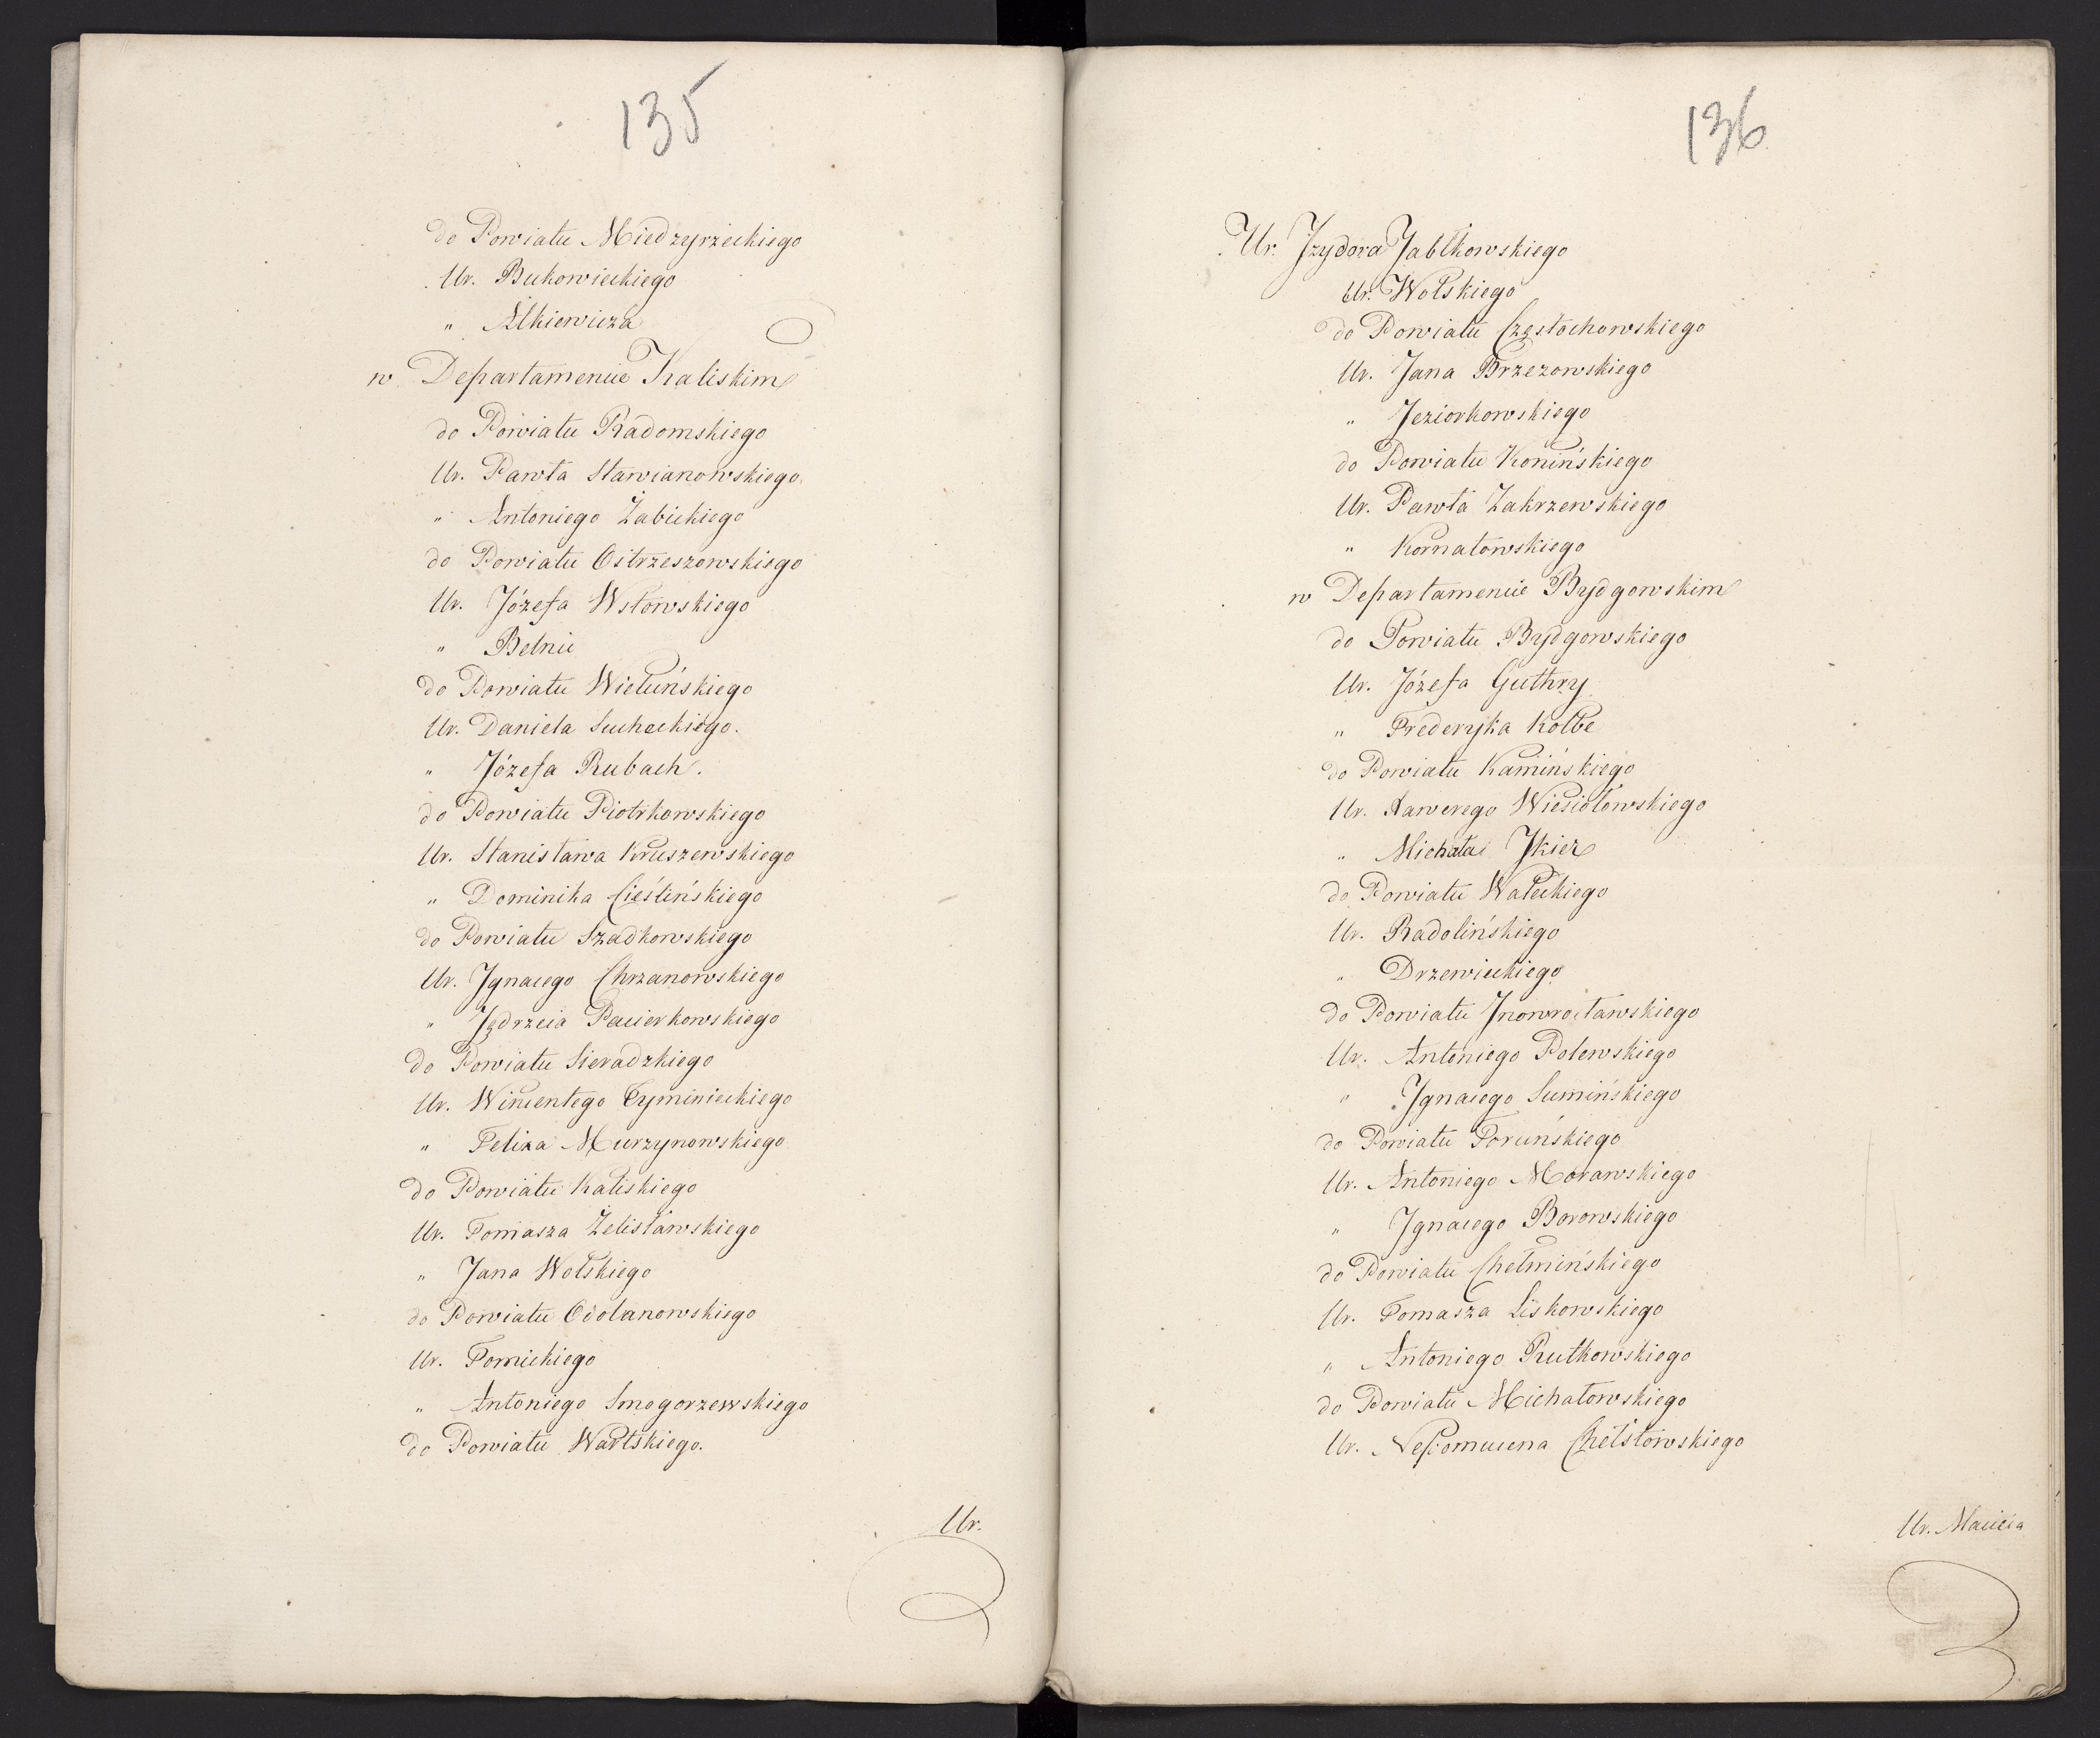 135
do Powiatu Miedzyrzeckiego
Ur. Bukowieckiego
" Ilkiewicza
w Departamencie Kaliskim
do Powiatu Radomskiego
Ur. Pawła Stawianowskiego
" Antoniego Żabickiego
do Powiatu Ostrzeszowskiego
Ur. Józefa Wstowskiego
" Belnie
do Powiatu Wieluńskiego
Ur. Daniela Sucheckiego.
" Józefa Rubach.
do Powiatu Piotrkowskiego
Ur. Stanisława Kruszewskiego
" Dominika Cieślińskiego
do Powiatu Szadkowskiego
Ur. Jgnacego Chrzanowskiego
" Jędrzeia Pacierkowskiego
do Powiatu Sieradzkiego
Ur. Wincentego Tyminieckiego
" Felixa Murzynowskiego
do Powiatu Kaliskiego
Ur. Tomasza Żelisławskiego
" Jana Wolskiego
do Powiatu Odolanowskiego
Ur. Tomickiego
" Antoniego Smogorzewskiego
do Powiatu Wartskiego.
Ur.
136
Ur. Jzydora Jabłkowskiego
Ur. Wolskiego
do Powiatu Częstochowskiego
Ur. Jana Brzezowskiego
" Jeziorkowskiego
do Powiatu Konińskiego
Ur. Pawła Zakrzewskiego
" Kornatowskiego
w Departamencie Bydgowskim
do Powiatu Bydgowskiego
Ur. Józefa Guthry
" Frederyka Kolbe
do Powiatu Kamińskiego
Ur. Xawerego Wiesiołowskiego
" Michała Jkier
do Powiatu Wałeckiego
Ur. Radolińskiego
" Drzewieckiego
do Powiatu Jnowrocławskiego
Ur. Antoniego Polewskiego
" Jgnacego Sumińskiego
do Powiatu Toruńskiego
Ur. Antoniego Morawskiego
" Jgnacego Borowskiego
do Powiatu Chełmińskiego
Ur. Tomasza Liskowskiego
" Antoniego Rutkowskiego
do Powiatu Michałowskiego
Ur. Nepomucena Chełstowskiego
Ur. Macieia